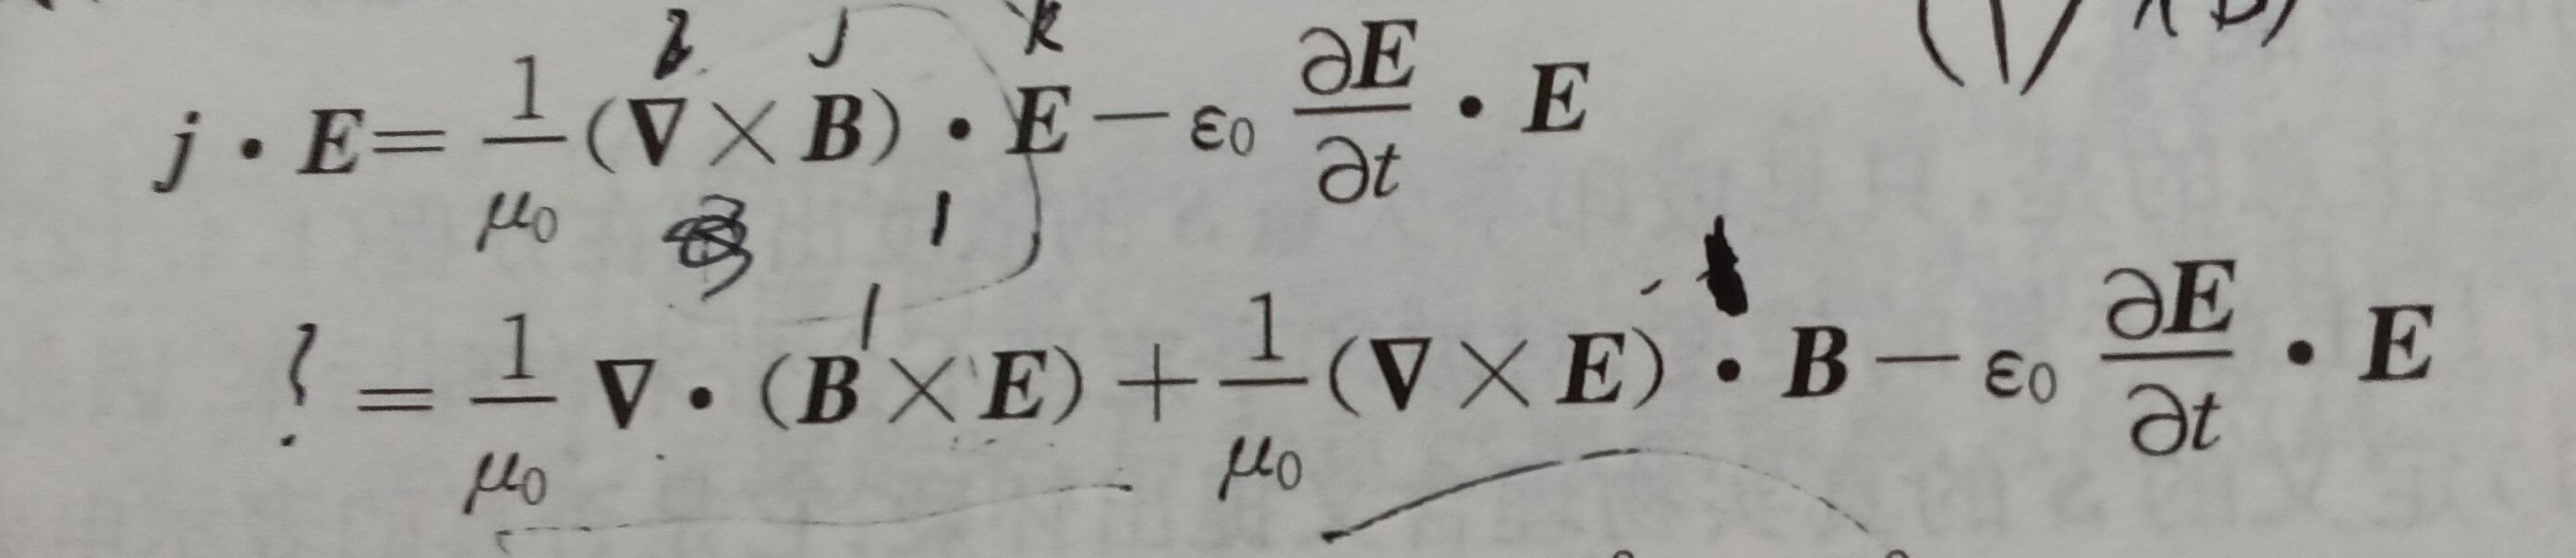 j · E = 1/μ₀ (∇ × B) · E − ε₀ ∂E/∂t · E
? = 1/μ₀ ∇ · (B × E) + 1/μ₀ (∇ × E) · B − ε₀ ∂E/∂t · E